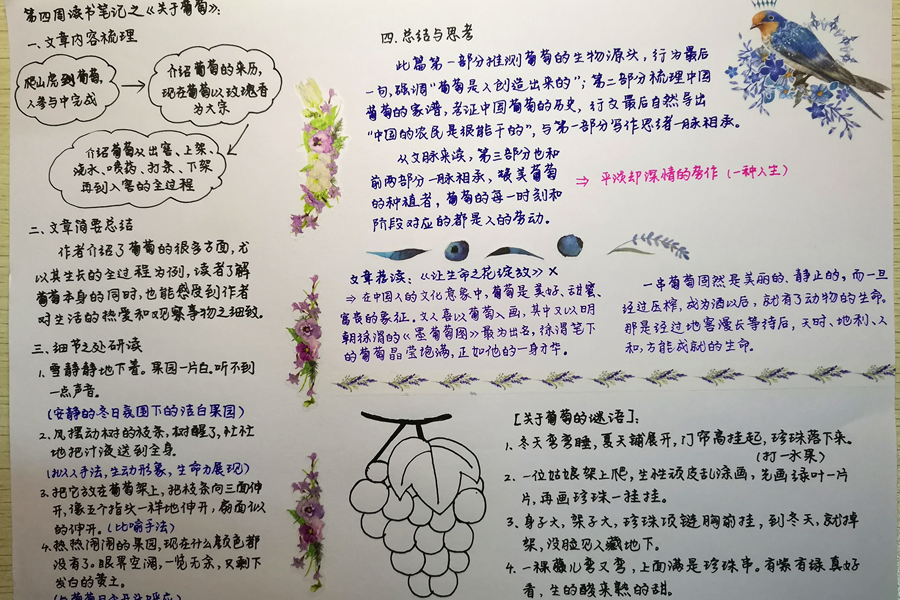 第四周读书笔记之《关于葡萄》:
一、文章内容梳理
爬山虎到葡萄,
人参与中完成
介绍葡萄的来历,
现在葡萄以玫瑰香
为大宗
介绍葡萄从出窖、上架、
浇水、喷药、打条、下架
再到入窖的全过程
二、文章简要总结
作者介绍了葡萄的很多方面,尤
以其生长的全过程为例,读者了解
葡萄本身的同时,也能感受到作者
对生活的热爱和观察事物之细致。
三、细节之处研读
1.雪静静地下着。果园一片白。听不到
一点声音。
(安静的冬日氛围下的洁白果园)
2.风摆动树的枝条,树醒了,忙忙
地把汁液送到全身。
(拟人手法,生动形象,生命力展现)
3.把它放在葡萄架上,把枝条向三面伸
开,像五个指头一样地伸开,扇面似
的伸开。(比喻手法)
4.热热闹闹的果园,现在什么颜色都
没有了。眼界空阔,一览无余,只剩下
发白的黄土。
四.总结与思考
此篇第一部分推测葡萄的生物源头,行为最后
一句,强调“葡萄是人创造出来的”;第二部分梳理中国
葡萄的家谱,考证中国葡萄的历史,行文最后自然导出
“中国的农民是很能干的”,与第一部分写作思绪一脉相承。
从文脉来读,第三部分也和
前两部分一脉相承,赞美葡萄
的种植者,葡萄的每一时刻和
阶段对应的都是人的劳动。
⇒ 平淡却深情的劳作(一种人生)
文章荐读:《让生命之花绽放》×
⇒在中国人的文化意象中,葡萄是美好、甜蜜、
富贵的象征。文人喜以葡萄入画,其中又以明
朝徐渭的《墨葡萄图》最为出名,徐渭笔下
的葡萄晶莹饱满,正如他的一身才华。
一串葡萄固然是美丽的、静止的,而一旦
经过压榨,成为酒以后,就有了动物的生命。
那是经过地窖漫长等待后,天时、地利、人
和,方能成就的生命。
[关于葡萄的谜语]:
1.冬天弯弯睡,夏天铺展开,门帘高挂起,珍珠落下来。
(打一水果)
2.一位姑娘架上爬,生性顽皮乱涂画,先画绿叶一片
片,再画珍珠一挂挂。
3.身子大,架子大,珍珠项链胸前挂,到冬天,就掉
架,没脸见人藏地下。
4.一棵藤儿弯又弯,上面满是珍珠串。有紫有绿真好
看,生的酸来熟的甜。